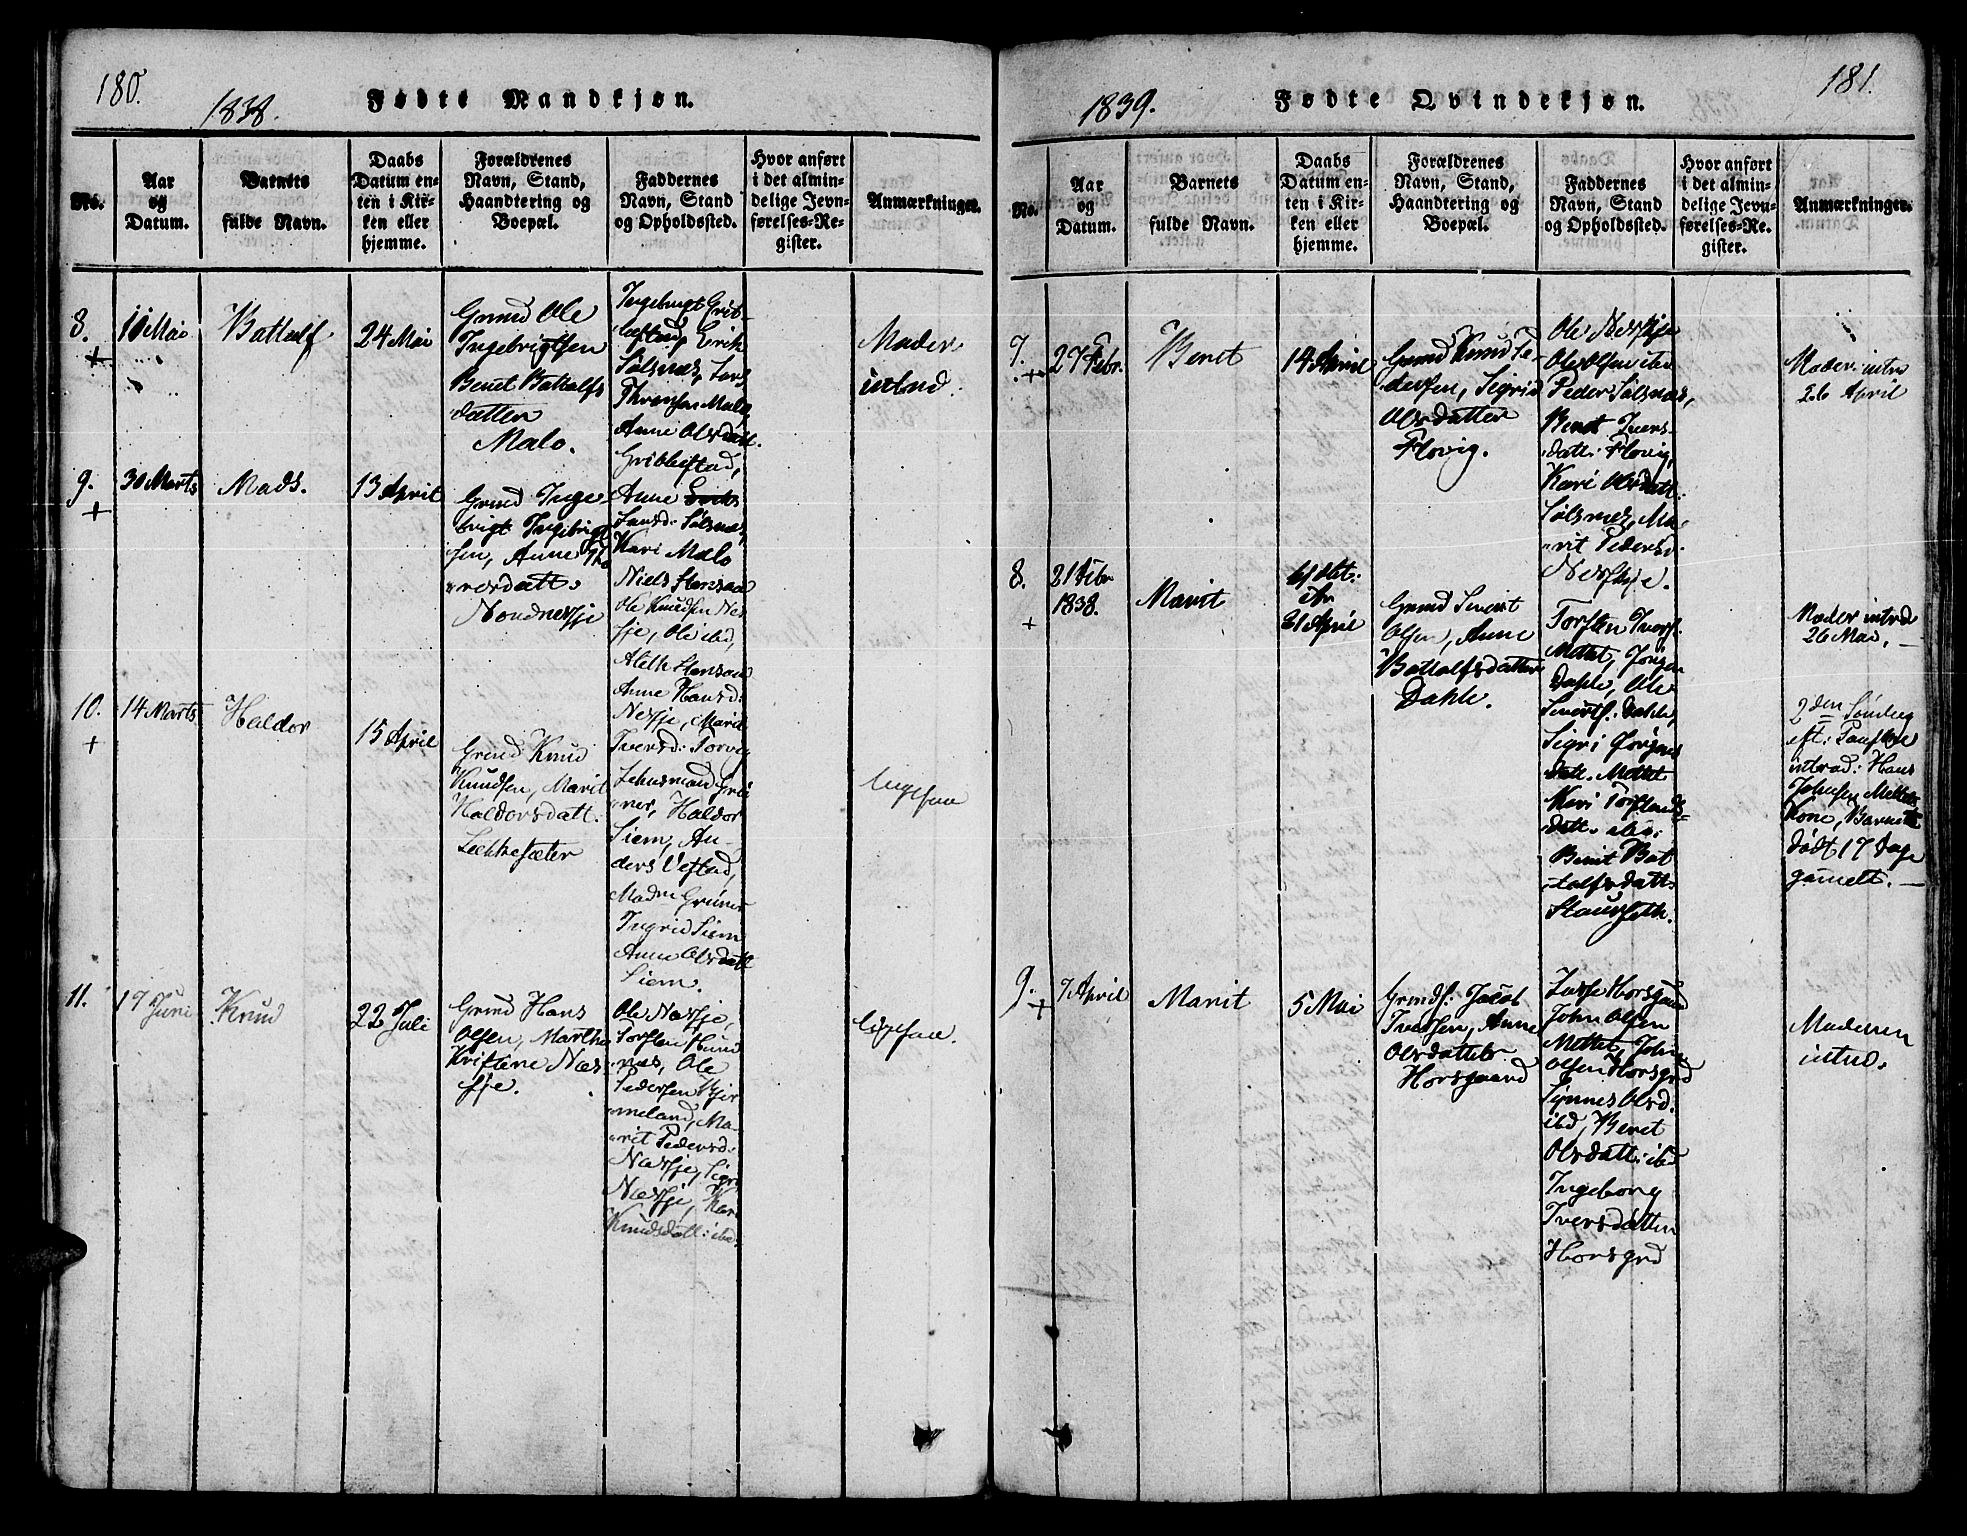 180.
1838.
Fødte Mandkjøn.
No.
Aar
og
Datum.
Barnets
fulde Navn.
Daabs
Datum en-
ten i Kir-
ken eller
hjemme.
Forældrenes
Navn, Stand,
Haandtering og
Boepæl.
Faddernes
Navn, Stand
og Opholdssted.
Hvor anført
i det almin-
delige Jevn-
førelses-Re-
gister.
Anmærkninger.
8.
Mai
Battalf
24 Mai
Grmd Ole
Ingebrigtsen
Beret Battalfs
datter
Malo.
Erik
Sølsnæs, Lars
Malo,
Anne Olsdatt.
Gribbestad,
Moder
9.
30 Marts
Mads.
13 April
Grmd Inge
brigt Ingebrigt
sen, Anne Tho
resdatt:
Nordnesje
Anne
Larsd: Sølsnæs,
Kari Malo
Niels
Ole Knudsen Nes
je, Ole ibd,
Anne Hansd:
Nesje, Marit
Iversd: Torvig
10.
14 Marts
Haldor
15 April
Grmd Knud
Knudsen, Marit
Haldorsdatt.
Haldor
Siem, An-
ders Vestad,
Ingrid Siem
Anne Olsdatt
Siem.
11.
17 Juni
Knud
22 Juli
Grmd Hans
Olsen, Marthe
Kristine Næs
sje.
Ole Næsje,
Torsten Hund
næs, Ole
Pedersen Bjør
meland, Ma-
rit Pedersd:
Næsje, Sigri
Næsje, Kari
Knudsdatt: ibd.
181.
1839.
Fødte Qvindekjøn.
No.
Aar
og
Datum.
Barnets
fulde Navn.
Daabs
Datum en-
ten i Kir-
ken eller
hjemme.
Forældrenes
Navn, Stand,
Haandtering og
Boepæl.
Faddernes
Navn, Stand
og Opholdssted.
Hvor anført
i det almin-
delige Jevn-
førelses-Re-
gister.
Anmærkninger.
7.
27 Febr.
Beret
14 April
Grmd Knud Pe
dersen, Sigrid
Olsdatter
Flovig.
Ole Nesje
Ole Olsen ibd
Peder Sølsnæs,
Beret Ivers-
datt: Flovig,
Kari Olsdatt:
Sølsnes, Ma-
rit Pedersd.
Nesje.
Moder intro
26 April
8.
21 Febr
1838.
Marit
21 April
Grmd Sivert
Olsen, Anne
Battalfsdatter
Dahle.
Torsten Ivers.
Mettet, Jørgen
Dahle, Ole
Sivertsz: Dahle,
Sigri Jørgens
datt. Mettet
Kari Torstens
datt. ibid.
Beret Bat
talfsdatt:
Staurseth.
Moder introd
26 Mai.
2den Søndag
eft: Paaske
introd: Hans
Johnsen Mettets
Kone, Barnet
dødt 17 Dage
gamelt.
9.
7 April
Marit
5 Mai
Grmds: Jacob
Iversen, Anne
Olsdatter
Horsgaard
Lasse Horsgaard
John Olsen
Mettet, John
Olsen Horsgrd
Synnes Olsd.
ibd, Beret
Olsdatt: ibd
Ingeborg
Iversdatter
Horsgrd
Moderen
introd.